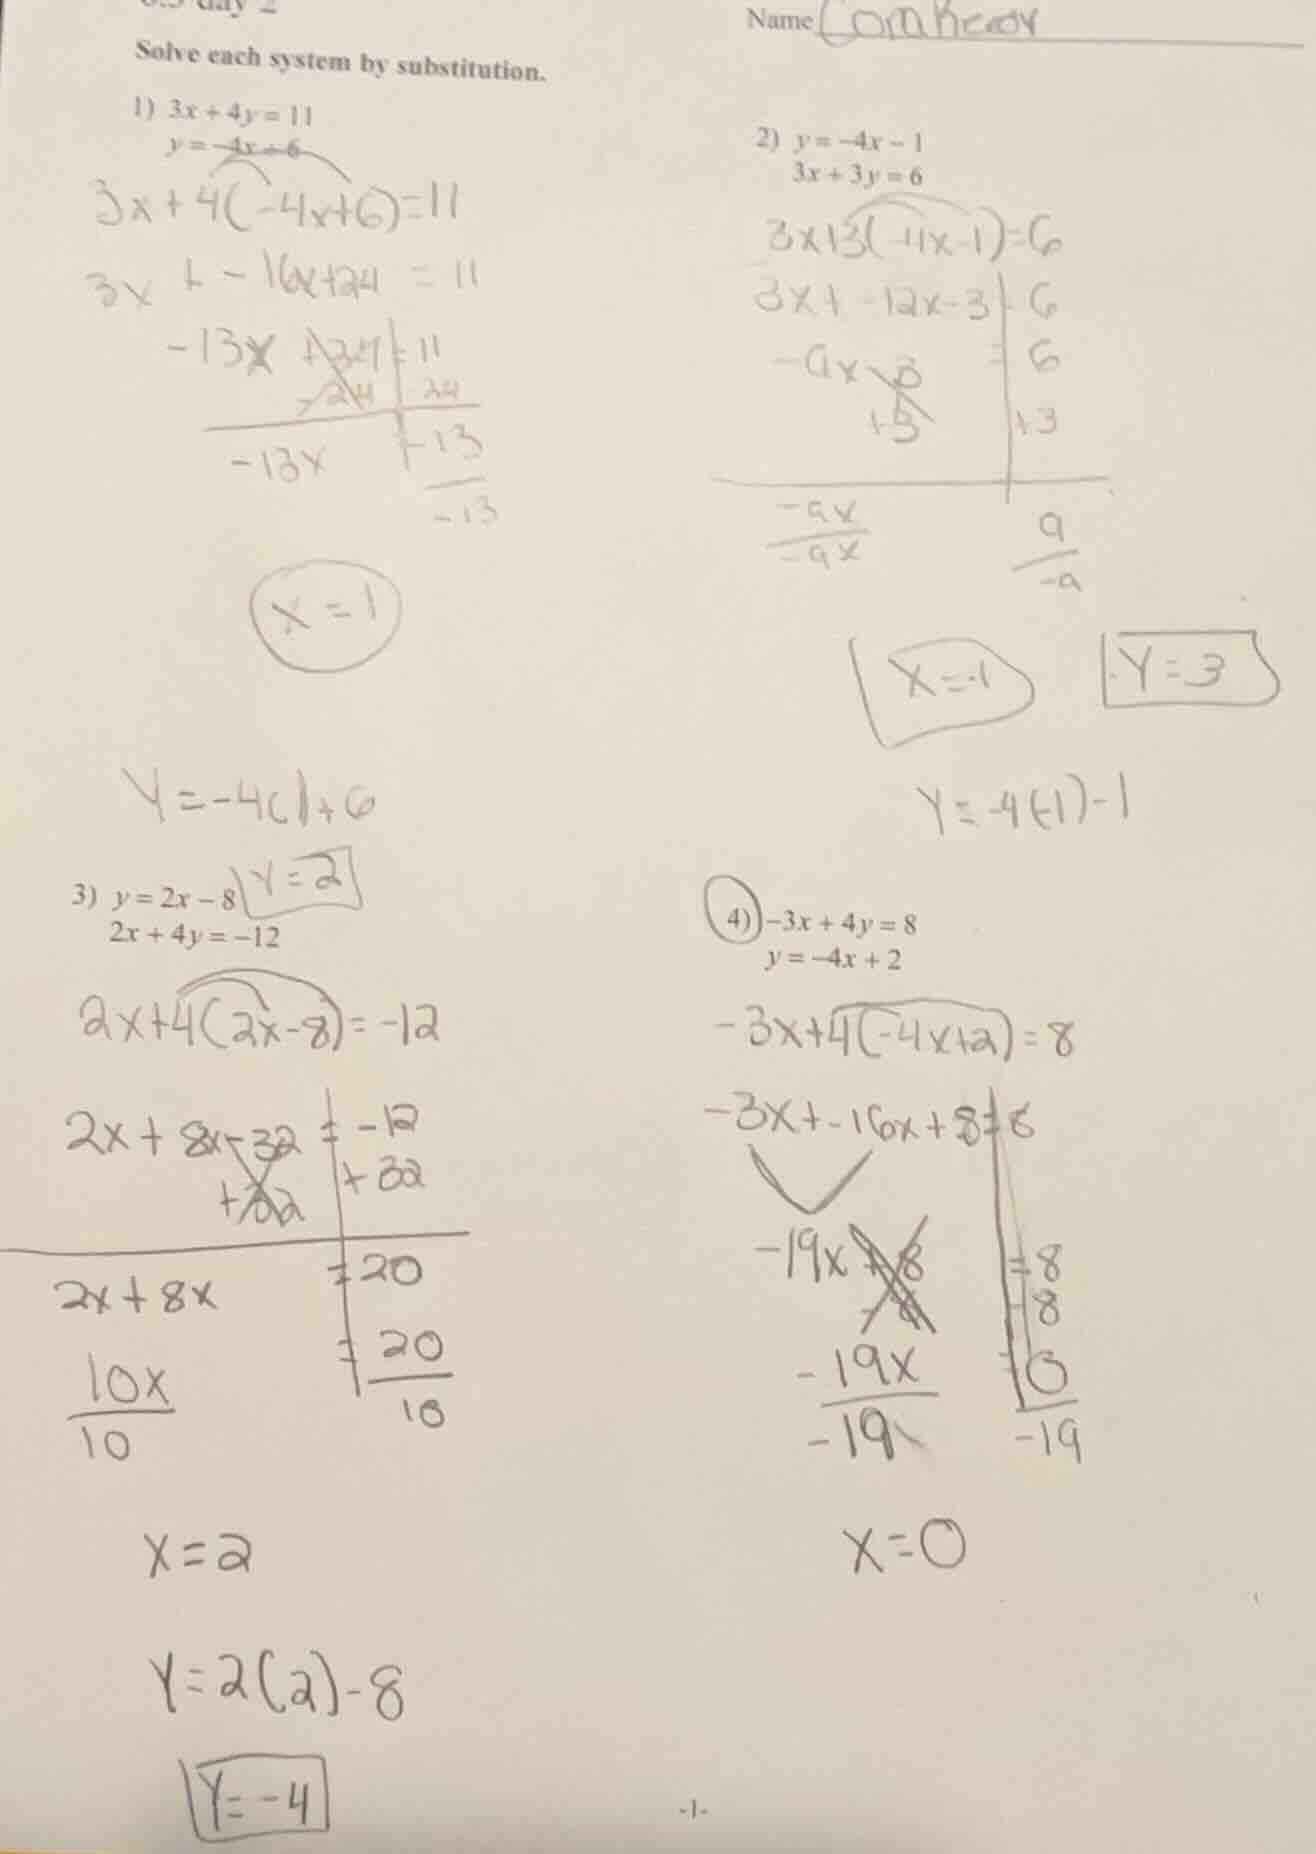 6.3 day 2
Name
Solve each system by substitution.
1) 3x + 4y = 11
y = -4x + 6
3x + 4(-4x+6) = 11
3x + - 16x+24 = 11
-13x +24 = 11
-24 -24
-13x = -13
-13
x = 1
Y = -4( )+6
Y = 2
2) y = -4x - 1
3x + 3y = 6
3x+3(-4x-1) = 6
3x + -12x-3 = 6
-9x -3 = 6
+3 +3
-9x 9
-9x -9
X = -1 Y = 3
Y = -4(-1)-1
3) y = 2x - 8
2x + 4y = -12
2x+4(2x-8) = -12
2x + 8x-32 = -12
+32 +32
2x + 8x = 20
10x = 20
10 10
x = 2
Y = 2(2)-8
Y = -4
4) -3x + 4y = 8
y = -4x + 2
-3x+4(-4x+2) = 8
-3x+-16x+8 = 8
-19x + 8 = 8
-8 -8
-19x = 0
-19 -19
x = 0
-1-